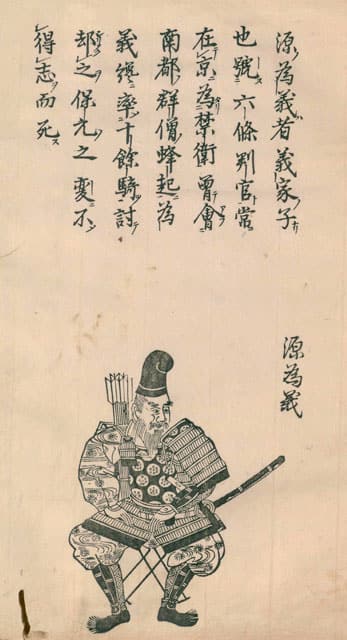 源為義者義家子
也號六條判官常
在京為禁衛曽會
南都群僧蜂起為
義纔率十餘騎討
却之保元之変不
得志而死
源為義